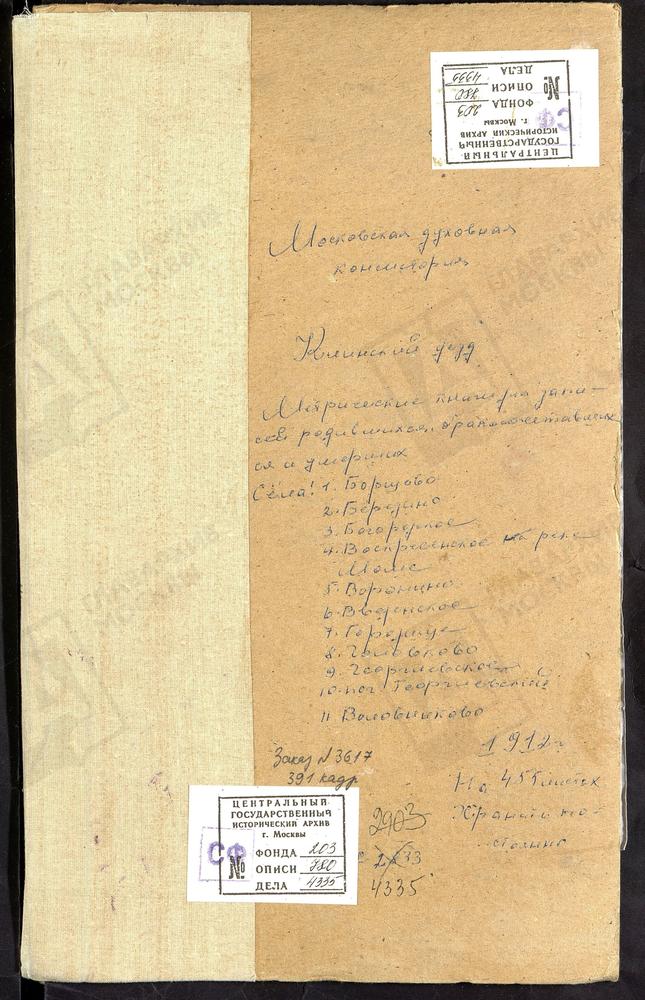 ЦЕНТРАЛЬНЫЙ
ГОСУДАРСТВЕННЫЙ
ИСТОРИЧЕСКИЙ АРХИВ
г. Москвы
СФ
№
ФОНДА 203
ОПИСИ 780
ДЕЛА 4335
Московская духовная
консистория
Клинский уезд
Метрические книги для запи-
сей родившихся, бракосочетавших
ся и умерших
Сёла: 1. Борщово
2. Березино
3. Богородское
4. Воскресенское на реке
5. Воронино
6. Введенское
7. Городище
8. Головково
9. Георгиевское
10. пог. Георгиевский
11. Воловниково
1912г
На 455 листах
Хранить по-
стоянно
Заказ N 3617
391 кадр
2903
2833
4335
ЦЕНТРАЛЬНЫЙ
ГОСУДАРСТВЕННЫЙ
ИСТОРИЧЕСКИЙ АРХИВ
г. Москвы
СФ
№
ФОНДА 203
ОПИСИ 780
ДЕЛА 4335
ГЛАВАРХИВ
МОСКВЫ